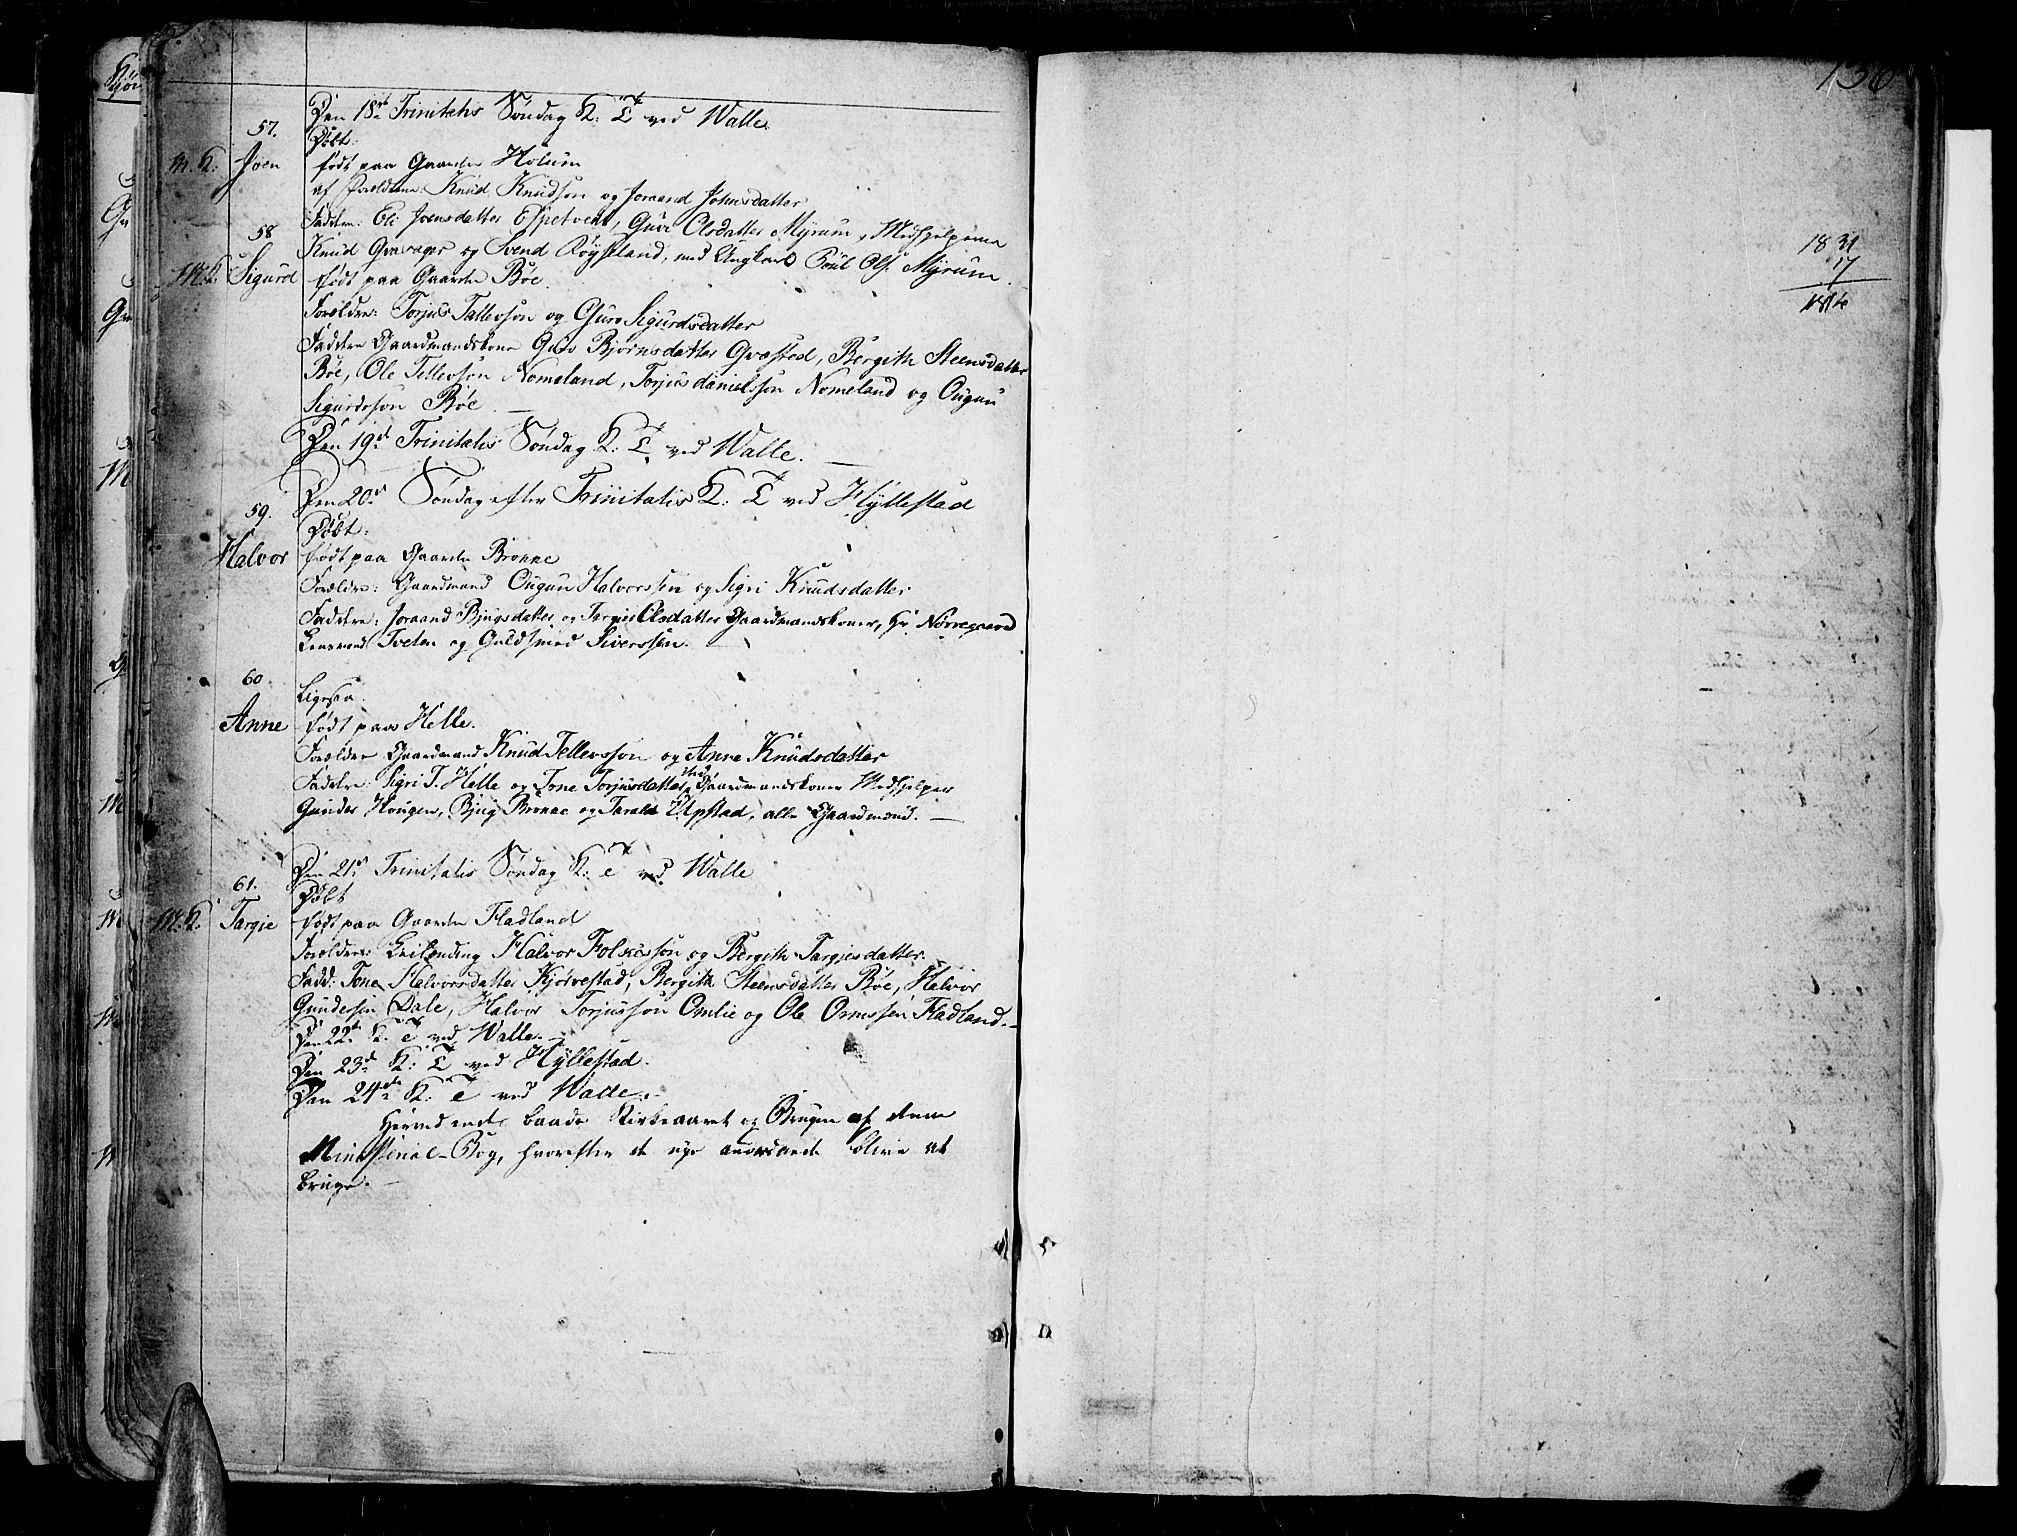 Den 18de Trinitatis Søndag K: T ved Walle.
57.
Døbt:
M. K: Joen
født paa Gaarden Holum
af Forældrene: Knud Knudsøn og Joraand Johnsdatter
Faddere: Eli Joensdatter Espetveit, Guro Olsdatter Myrum, Medhjelperne
58
Knud Qvavager og Svend Røysland, med Ungkarl Poul Ols. Myrum.
M. K. Sigurd
født paa Gaarden Bøe.
Forældre: Torjus Tallevsøn og Guro Sigurdsdatter
Faddere Gaardmandskone Guro Bjørnsdatter Qvæsted, Bergith Steensdatter
Bøe, Ole Tellevsøn Nomeland, Torjus danielssøn Nomeland og Ougun
Sigurdsson Bøe.
Den 19de Trinitatis Søndag K: T. ved Walle.
Den 20de Søndag efter Trinitatis K: T ved Hyllestad
59.
Døbt:
Halvor
født paa Gaarden Brokke
Forældre: Gaardmand Ougun Halvorssen og Sigri Knudsdatter
Faddere: Joraand Bjugsdatter og Targier Olsdatter Gaardmandskoner, Hr Nørregaard
Lensmand Tveten og Guldsmed Siverssen.
60
Ligesaa.
Anne
født paa Helle.
Forældre Gaardmand Knud Tellevssøn og Anne Knudsdatter
Faddere: Sigri T. Helle og Tone Torjusdatter Gaardmandskoner Medhjelper
Gunder Hougen, Bjug Brokke og Tarald Upstad, alle Gaardmænd.
Den 21de Trinitatis Søndag K: T ved Walle
61.
Døbt
M. K. Targie
født paa Gaarden Fladland
Forældre: Leilending Halvor Folkessøn og Bergith Targiesdatter.
Fadd: Tone Halvorsdatter Kjørvestad, Bergith Steensdatter Bøe, Halvor
Gundersen Dale, Halvor Torjussøn Omlie og Ole Ormssen Fladland.
Den 22de K. T ved Walle.
Den 23de K: T ved Hyllestad.
Den 24de K: T ved Walle.
Herved endes baade Kirkeaaret og Brugen af denne
Ministerial-Bog, hvorefter et nye anordnede blive at
bruge.
136
1831
17
1814